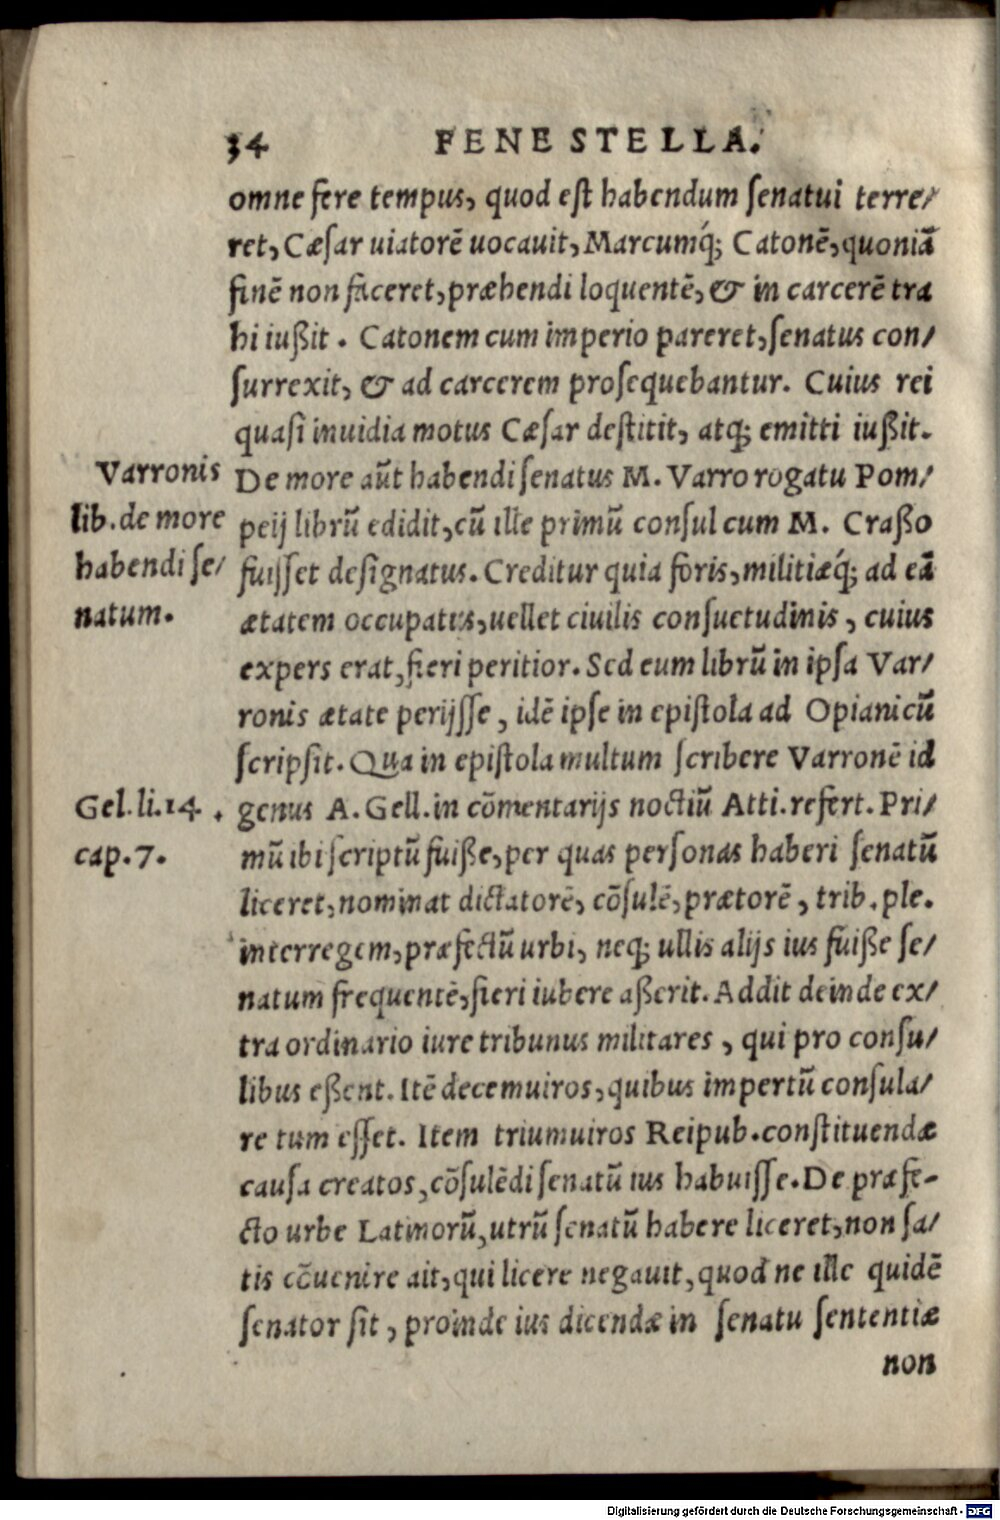 34 FENESTELLA.
omne fere tempus, quod est habendum senatui terre/
ret, Cæsar uiatorē uocauit, Marcumq́; Catonē, quoniā
finē non faceret, præhendi loquentē, & in carcerē tra
hi iußit. Catonem cum imperio pareret, senatus con/
surrexit, & ad carcerem prosequebantur. Cuius rei
quasi inuidia motus Cæsar destitit, atq; emitti iußit.
De more aūt habendi senatus M. Varro rogatu Pom/
peij librū edidit, cū ille primū consul cum M. Craßo
fuisset designatus. Creditur quia foris, militiæq́; ad eā
ætatem occupatus, uellet ciuilis consuetudinis, cuius
expers erat, fieri peritior. Sed eum librū in ipsa Var/
ronis ætate perijsse, idē ipse in epistola ad Opianicū
scripsit. Qua in epistola multum scribere Varronē id
genus A. Gell. in cōmentarijs noctiū Atti. refert. Pri/
mū ibi scriptū fuiße, per quas personas haberi senatū
liceret, nominat dictatorē, cōsulē, prætorē, trib. ple.
interregem, præfectū urbi, neq; ullis alijs ius fuiße se/
natum frequentē, fieri iubere aßerit. Addit deinde ex/
tra ordinario iure tribunus militares, qui pro consu/
libus eßent. Itē decemuiros, quibus impertū consula/
re tum esset. Item triumuiros Reipub. constituendæ
causa creatos, cōsulēdi senatū ius habuisse. De præfe-
cto urbe Latinorū, utrū senatū habere liceret, non sa/
tis cōuenire ait, qui licere negauit, quod ne ille quidē
senator sit, proinde ius dicendæ in senatu sententiæ
non
Varronis
lib. de more
habendi se/
natum.
Gel. li. 14.
cap. 7.
Digitalisierung gefördert durch die Deutsche Forschungsgemeinschaft - DFG